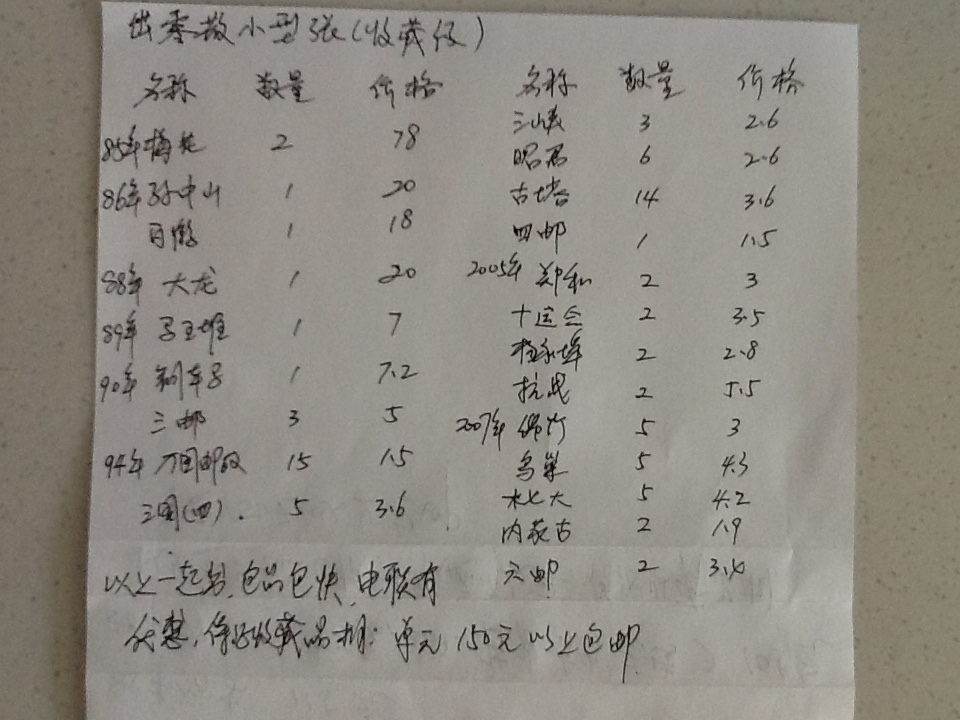 出零散小型张(收藏级)
名称 数量 价格
85年梅花 2 78
86年孙中山 1 20
白鹤 1 18
88年 大龙 1 20
89年 马王堆 1 7
90年 铜车马 1 7.2
三邮 3 5
94年 万国邮政 15 1.5
三国(四). 5 3.6
名称 数量 价格
三峡 3 2.6
昭君 6 2.6
古塔 14 3.6
四邮 1 1.5
2005年 郑和 2 3
十运会 2 3.5
杨家埠 2 2.8
抗战 2 5.5
2007年 绵竹 5 3
鸟巢 5 4.3
北大 5 4.2
内蒙古 2 1.9
六邮 2 3.4
以上一起出,包品包快,电联有
优惠,保证收藏品相:单元150元以上包邮